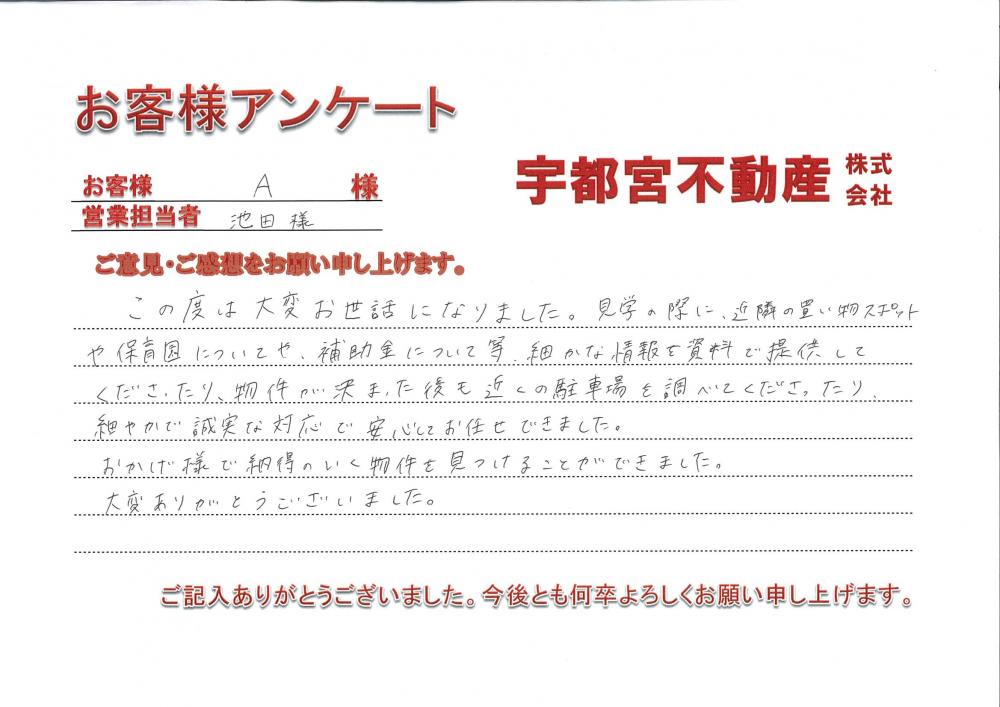 お客様アンケート
宇都宮不動産 株式会社
お客様 A 様
営業担当者 池田 様
ご意見・ご感想をお願い申し上げます。
この度は大変お世話になりました。見学の際に、近隣の買い物スポット
や保育園についてや、補助金について等、細かな情報を資料で提供して
くださったり、物件が決まった後も近くの駐車場を調べてくださったり、
細やかで誠実な対応で安心してお任せできました。
おかげ様で納得のいく物件を見つけることができました。
大変ありがとうございました。
ご記入ありがとうございました。今後とも何卒よろしくお願い申し上げます。